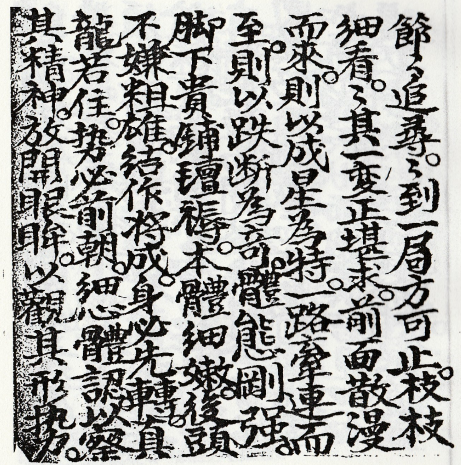 節〻追尋。〻到一局方可止。枝枝
細看。〻其一变正堪求。前面散漫
而來。則以成星為特。一路牽連而
至。則以跌断為奇。體態剛强。
脚下貴鋪氊褥。本體細嫩。後頭
不嫌粗雄。結作将成。身必先轉。真
龍若住。势必前朝。細心體認。以察
其精神。放開眼眸。以觀其形势。